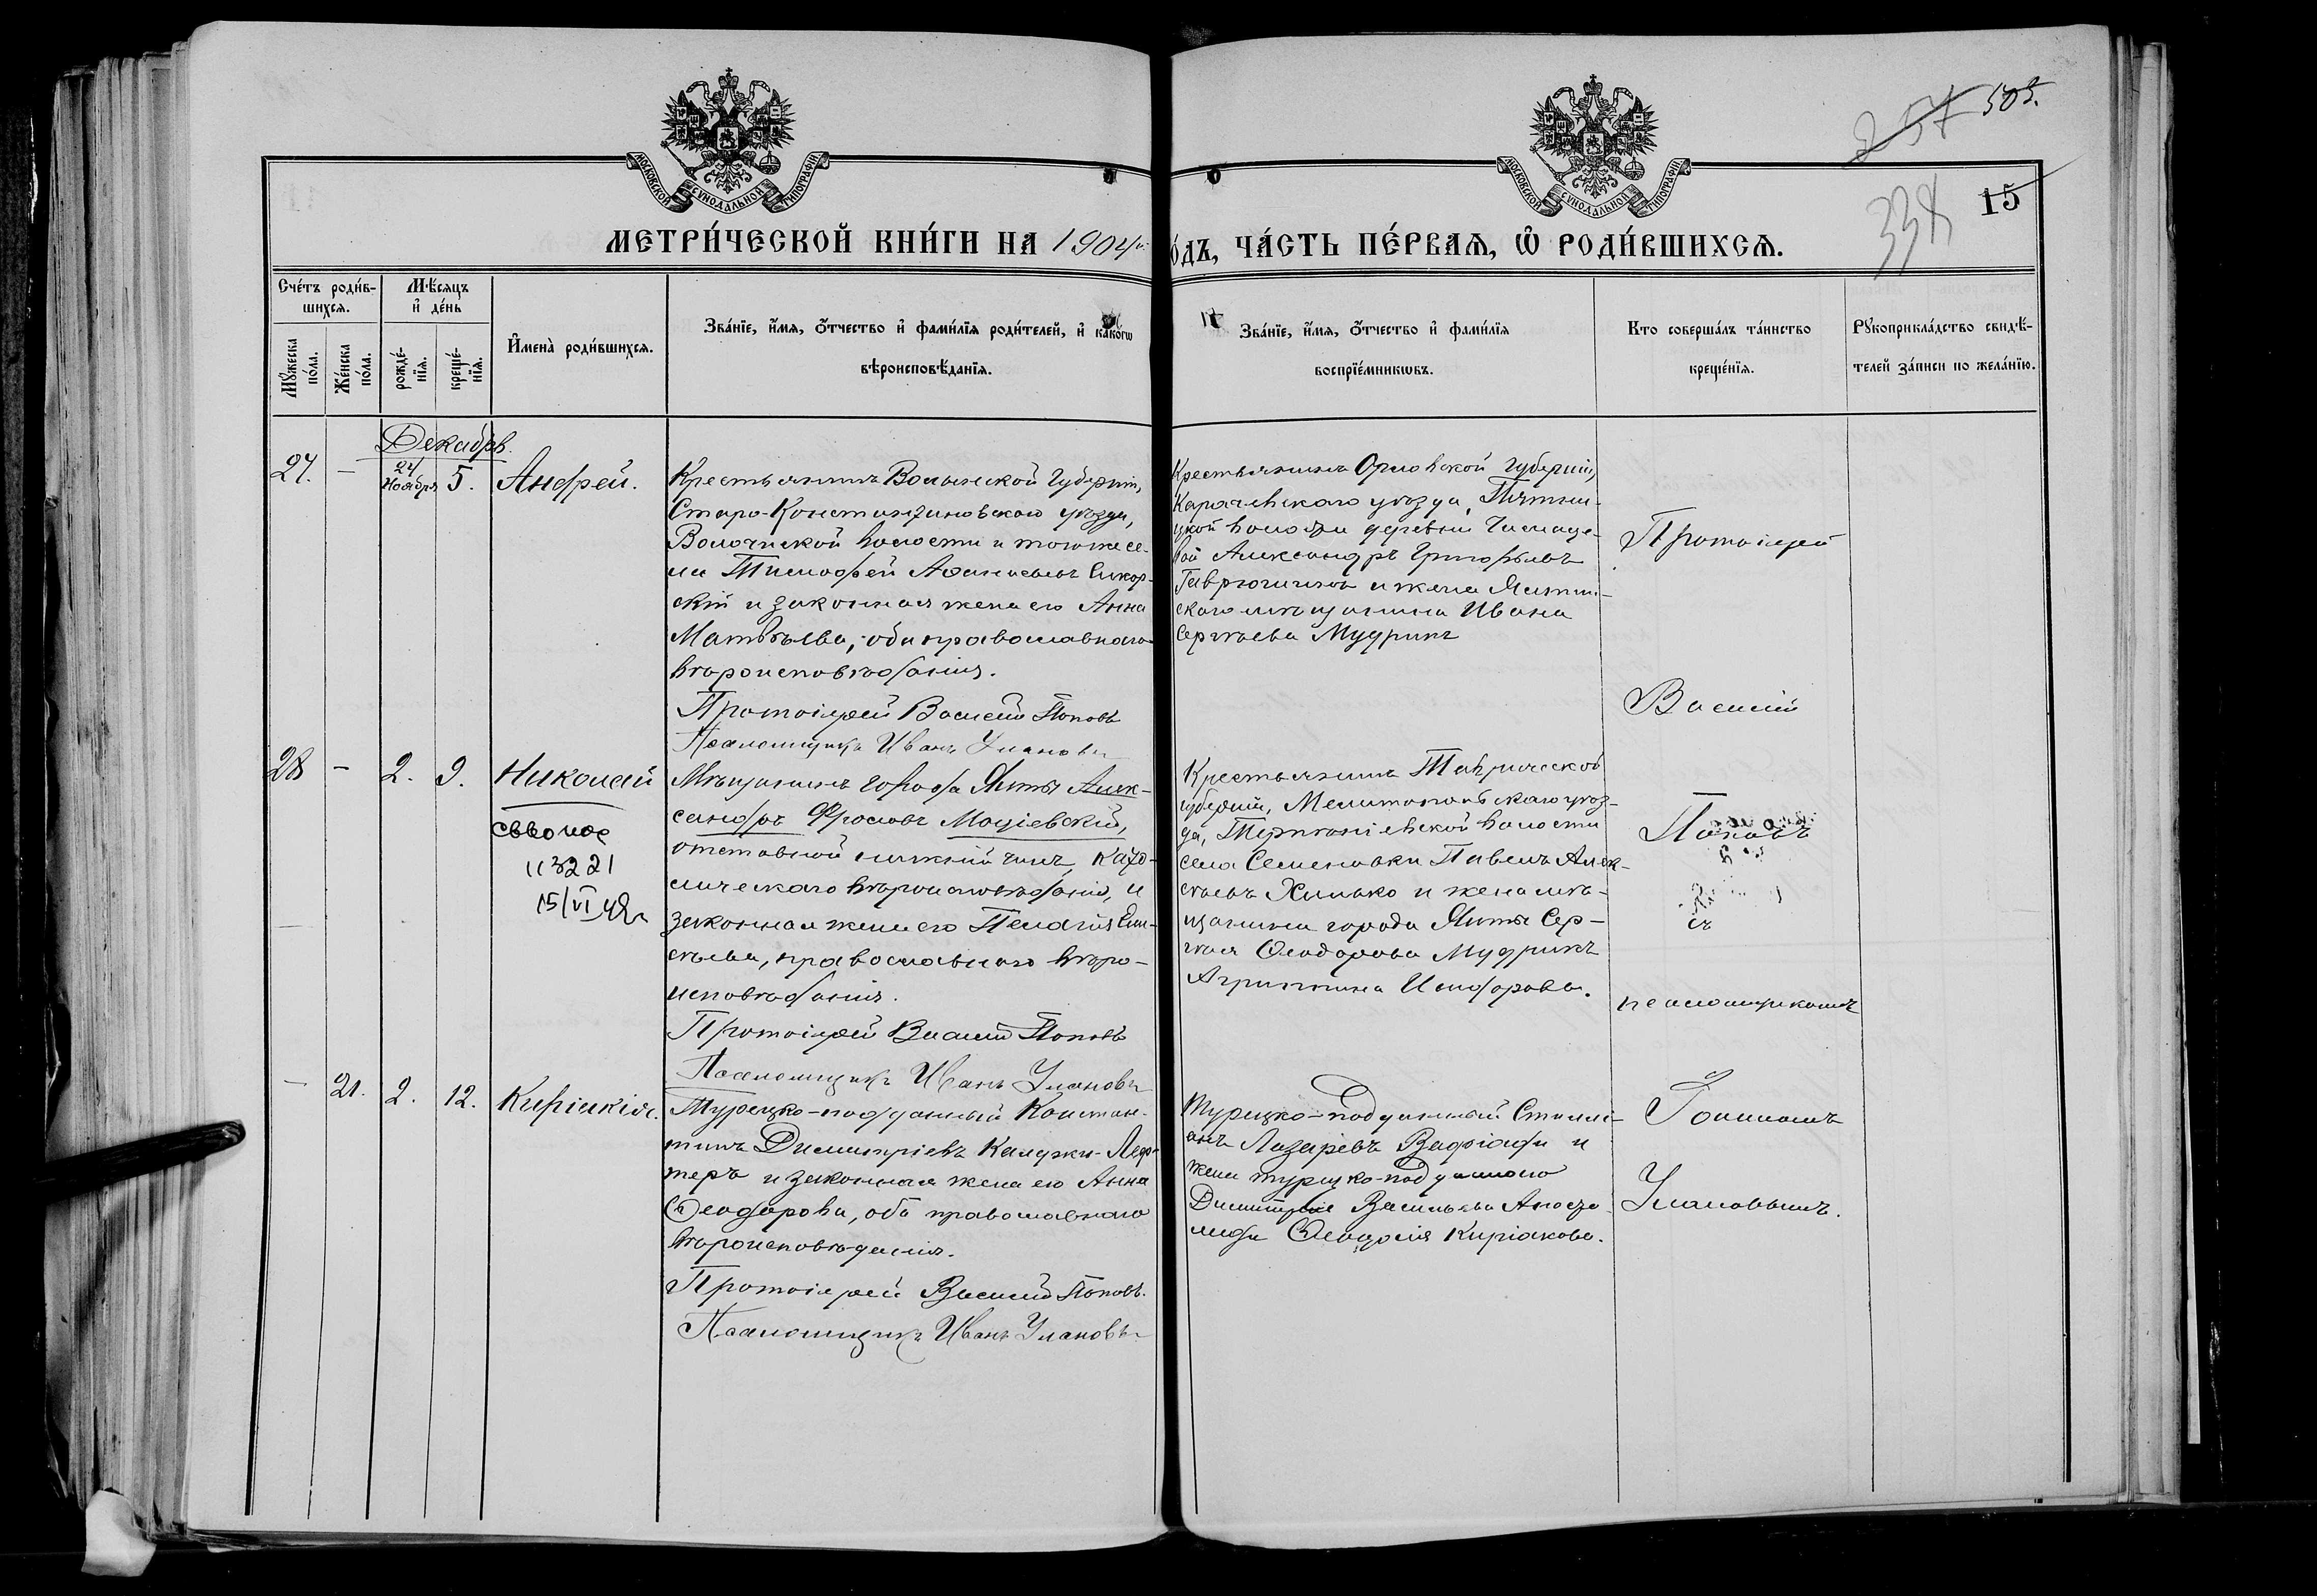 МОСКОВСКОЙ СѴНОДАЛЬНОЙ ТИПОГРАФІИ
МОСКОВСКОЙ СѴНОДАЛЬНОЙ ТИПОГРАФІИ
257 505.
338
15
МЕТРИ́ЧЕСКОЙ КНИ́ГИ НА 1904й
О́ДЪ, ЧА́СТЬ ПЕ́РВАЯ, Ѡ҆ РОДИ́ВШИХСЯ.
Сче́тъ роди́в-
шихся.
Мꙋ́жеска по́ла.
Же́нска по́ла.
Мѣ́сяцъ
и҆ де́нь
рожде́-
нїя.
креще́-
нїя.
И҆мена̀ роди́вшихся.
Зва́нїе, и҆́мя, ѻ҆́тчество и҆ фами́лїя роди́телей, и҆ како́гѡ
вѣроисповѣ́данїя.
Зва́нїе, и҆́мя, ѻ҆́тчество и҆ фами́лїя
воспрїе́мникѡвъ.
Кто соверша́лъ та́инство
креще́нїя.
Рꙋкоприкла́дство свидѣ́-
телей за́писи по жела́нїю.
Декабрь.
27. — 24 Ноября 5. Андрей.
Крестьянинъ Волынской Губерніи,
Старо-Константиновскаго уѣзда,
Волочиской волости и того же се-
ла Тимофей Аѳанасьевъ Сикор-
скій и законная жена его Анна
Матвѣева, оба православнаго
вѣроисповѣданія.
Протоіерей Василій Поповъ
Псаломщикъ Иванъ Улановъ
Крестьянинъ Орловской губерніи,
Карачевскаго уѣзда, Пятниц-
кой волости деревни
вой Александръ Григорьевъ
Гаврюшинъ и жена Ялтин-
скаго мѣщанина Ивана
Сергѣева Мудрикъ
Протоіерей
Василій
Поповъ
съ
псаломщикомъ
Іоанномъ
Улановымъ.
28 — 2. 9. Николай
113221
15/VI 42г
Мѣщанинъ города Ялты Алек-
сандръ Фроловъ Мацiевскій,
отставной нижній чинъ, Като-
лическаго вѣроисповѣданія, и
законная жена его Пелагія Ели-
сѣева, православнаго вѣро-
исповѣданія.
Протоіерей Василій Поповъ
Псаломщикъ Иванъ Улановъ
Крестьянинъ Таврической
губерніи, Мелитопольскаго уѣз-
да, Терпѣніевской волости
села Семеновки Павелъ Алек-
сѣевъ Хилько и жена мѣ-
щанина города Ялты Сер-
гѣя Ѳеодорова Мудрикъ
Агриппина Исидорова.
— 21. 2. 12. Киріакія.
Турецко-подданный Констан-
тинъ Димитріевъ Калджи-Леф-
теръ и законная жена его Анна
Ѳеодорова, оба православнаго
вѣроисповѣданія.
Протоіерей Василій Поповъ.
Псаломщикъ Иванъ Улановъ
Турецко-подданный Стилі-
анъ Лазаревъ Вафіади и
жена турецко-подданнаго
Димитрія Васильева Апосто-
лиди Ѳеодосія Киріакова.